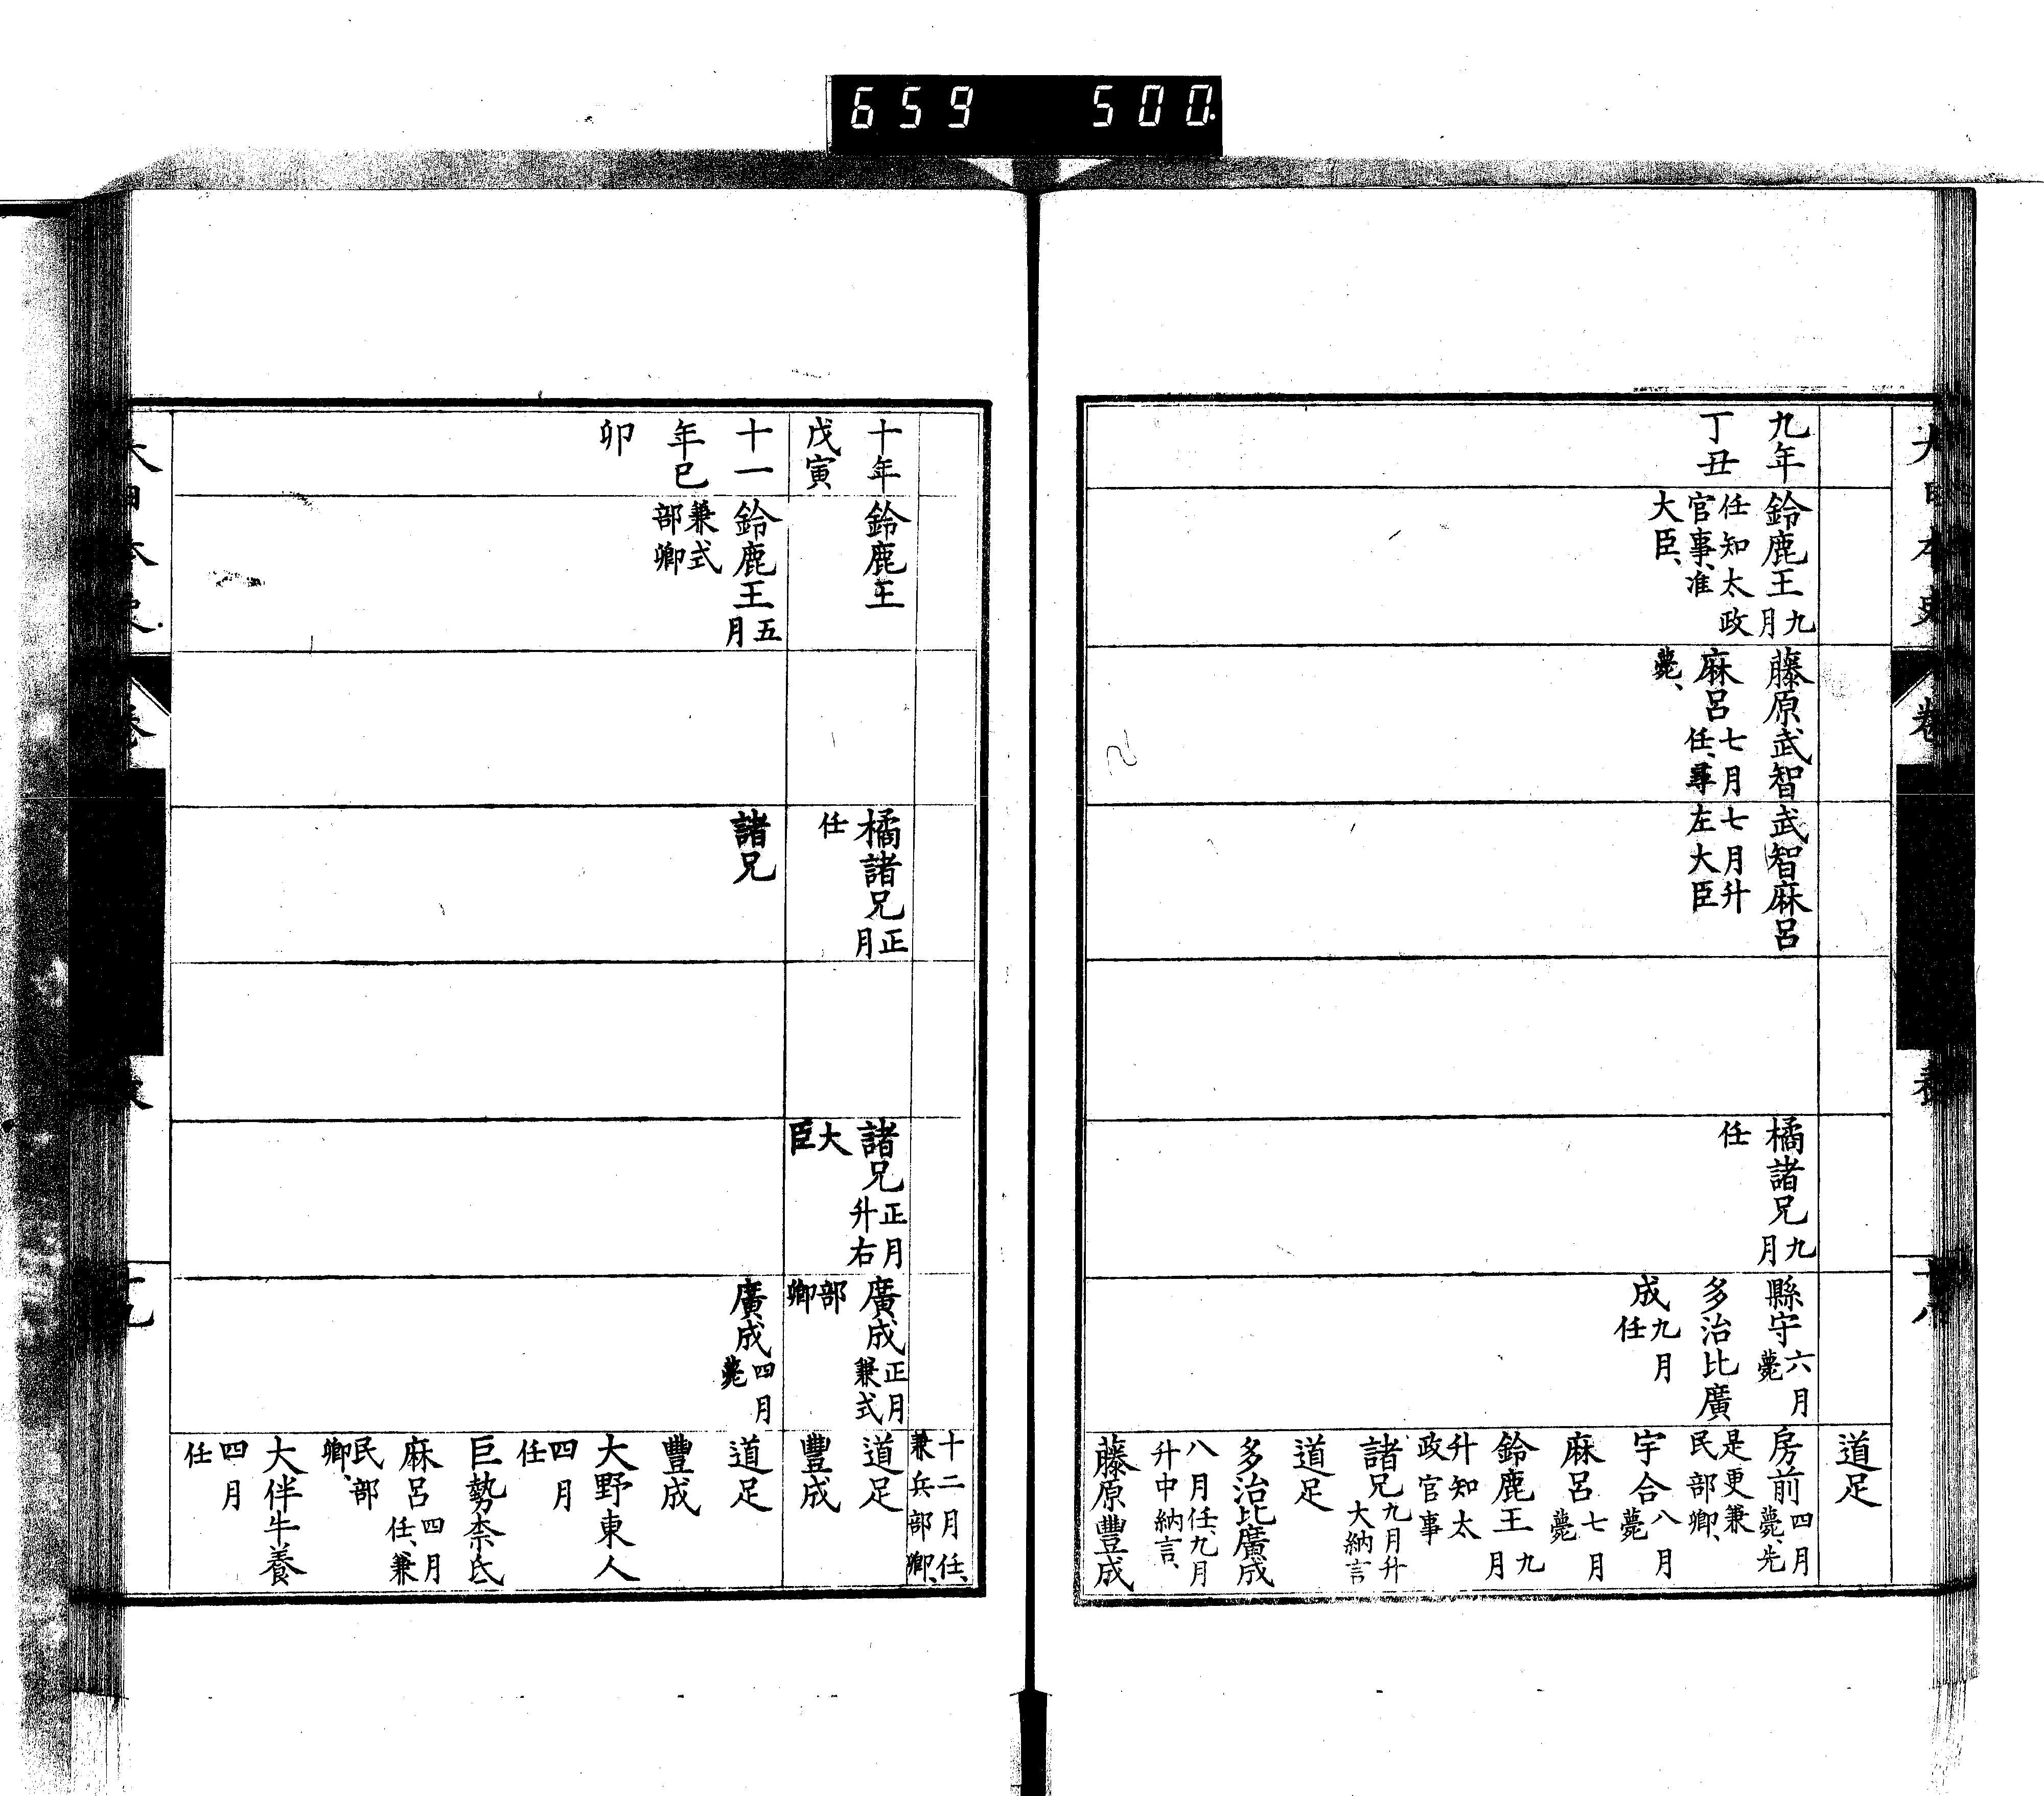 659 500
道足
九年
丁丑
鈴鹿王九月
任知太政
官事、准
大臣、
藤原武智
麻呂七月
任、尋
薨、
武智麻呂
七月升
左大臣
橘諸兄九月
任
縣守六月薨
多治比廣
成九月任
房前四月薨、先
是更兼
民部卿、
宇合八月薨
麻呂七月薨
鈴鹿王九月
升知太
政官事
諸兄九月升大納言
道足
多治比廣成
八月任、九月
升中納言、
藤原豐成
十二月任、
兼兵部卿、
十年
戊寅
鈴鹿王
橘諸兄正月
任
諸兄正月升右
大臣
廣成正月兼式
部卿
道足
豐成
十一
年己
卯
鈴鹿王五月
兼式
部卿
諸兄
廣成四月薨
道足
豐成
大野東人
四月
任
巨勢奈氐
麻呂四月任、兼
民部
卿、
大伴牛養
四月
任